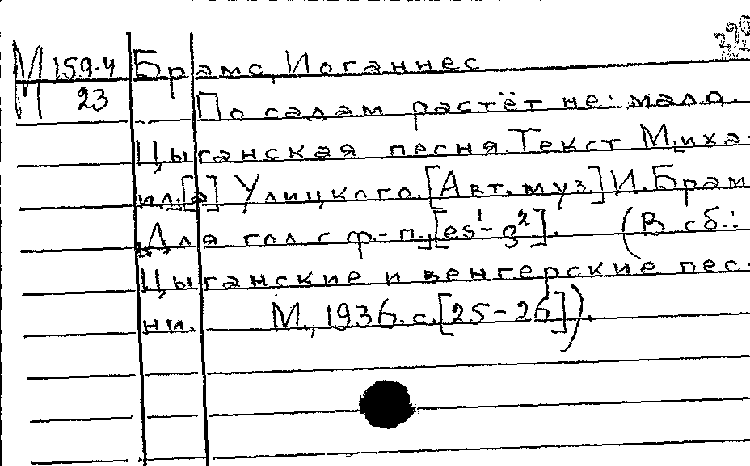 М 159-4 Брамс, Иоганнес
М 23 По садам растёт не мало.
Цыганская песня. Текст Миха-
ил.[а] Улицкого. [Авт. муз.] И. Брам
Для гол. с ф.-п. [es¹-g²]. (В сб.:
Цыганские и венгерские пес-
ни. М., 1936. с. [25-26]).